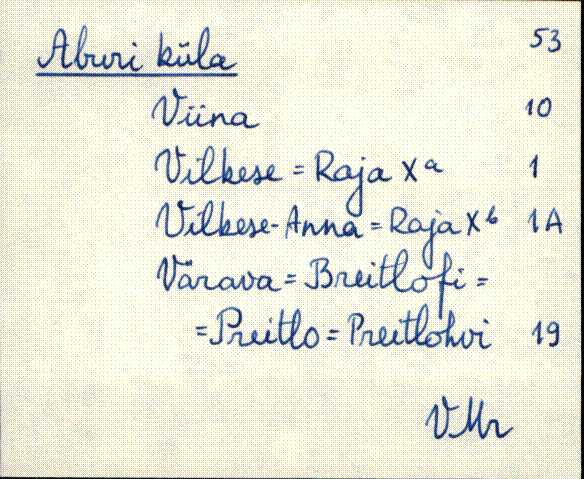 Aburi küla 53
Viina 10
Vilkese = Raja Xᵃ 1
Vilkese-Anna = Raja Xᵇ 1A
Värava = Breitlofi =
= Preitlo = Preitlohvi 19
VMr